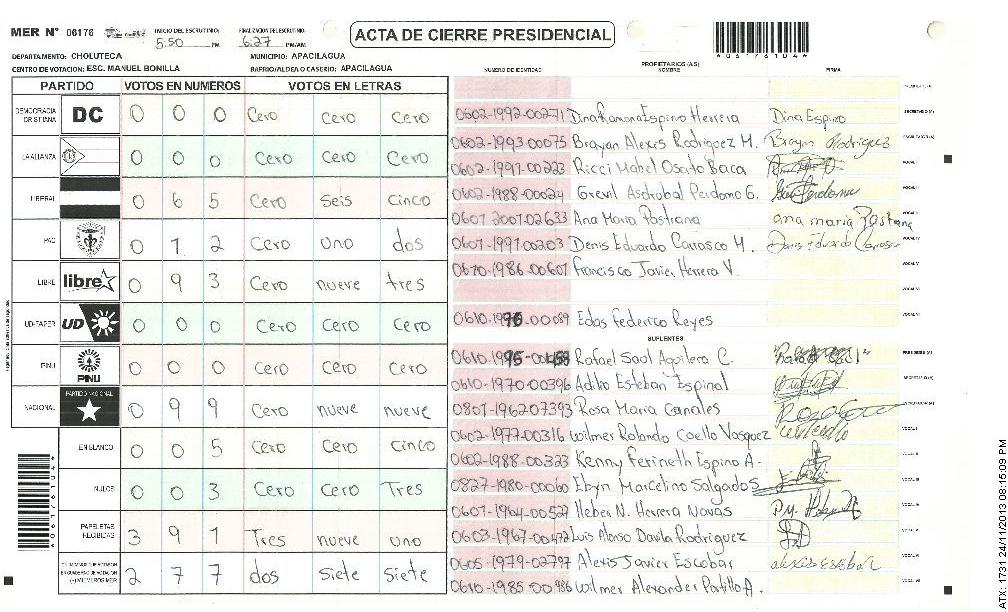 MER N° 06176
INICIO DEL ESCRUTINIO: 5:50 PM
FINALIZACION DEL ESCRUTINIO: 6:27 PM/AM
ACTA DE CIERRE PRESIDENCIAL
*06176104*
DEPARTAMENTO: CHOLUTECA
MUNICIPIO: APACILAGUA
CENTRO DE VOTACION: ESC. MANUEL BONILLA
BARRIO/ALDEA O CASERIO: APACILAGUA
PARTIDO VOTOS EN NUMEROS VOTOS EN LETRAS
DEMOCRACIA CRISTIANA DC 0 0 0 Cero Cero Cero
LA ALIANZA 0 0 0 Cero Cero Cero
LIBERAL 0 6 5 Cero Seis Cinco
PAC 0 1 2 Cero uno dos
LIBRE libre 0 9 3 Cero nueve tres
UD-FAPER UD 0 0 0 Cero Cero Cero
PINU PINU 0 0 0 Cero Cero Cero
NACIONAL PARTIDO NACIONAL 0 9 9 Cero nueve nueve
EN BLANCO 0 0 5 Cero Cero Cinco
NULOS 0 0 3 Cero Cero Tres
PAPELETAS RECIBIDAS 3 9 1 Tres nueve uno
2 7 7 dos siete siete
*06176104*
NUMERO DE IDENTIDAD PROPIETARIOS (AS) NOMBRE FIRMA
0602-1992-00271 Dina Ramona Espino Herrera Dina Espino
0602-1993-00075 Brayan Alexis Rodriguez M. Brayan Rodriguez
0602-1991-00223 Ricci Mabel Osorto Baca
0602-1988-00024 Grevil Asdrobal Perdomo G.
0601 2001-02633 Ana Maria Pastrana ana maria Pastrana
0601-1991-00203 Denis Eduardo Carrasco M. Denis Eduardo Carrasco
0610-1986-00601 Francisco Javier Herrera V.
Edas Federico Reyes
SUPLENTES
Rafael Saol Aguilera C.
0610-1970-00396 Adilio Esteban Espinal
0801-1962-07393 Rosa Maria Canales
0602-1977-00316 Wilmer Rolando Coello Vasquez
0602-1988-00323 Kenny Ferineth Espino A-
0827-1980-00060 Ebyn Marcelino Salgado S
0601-1964-00527 Heber N. Herrera Navas
0603-1967-00472 Luis Alonso Davila Rodriguez
0605-1979-02797 Alexis Javier Escobar alexis Escobar
0610-1985-00986 Wilmer Alexander Padilla A.
ATX: 1731 24/11/2013 08:15:09 PM